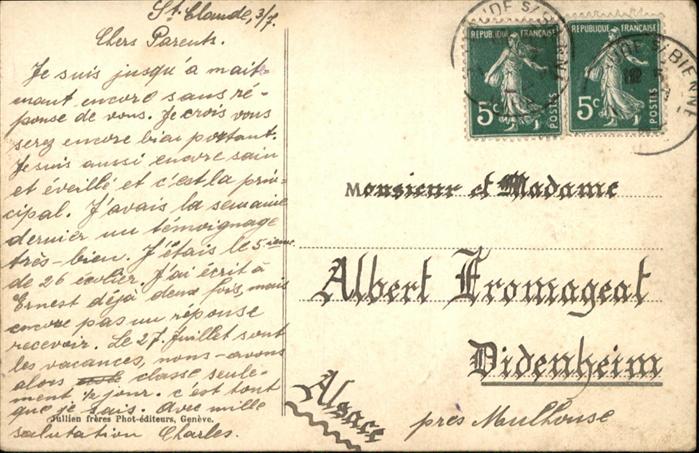 St. Claude, 3/7.
Chers Parents.
Je suis jusqu'à mait-
nant encore sans ré-
ponse de vous. Je crois vous
serez encore bien portant.
Je suis aussi encore sain
et éveillé et c'est la prin-
cipal. J'avais la semaine
dernier un témoignage
très-bien. J'étais le 5ième
de 26 écolier. J'ai écrit à
Ernest déjà deux fois, mais
encore pas un réponse
recevoir. Le 27. Juillet sont
les vacances, nous-avons
alors classe seule-
ment ½ jour. c'est tout
que je sais. Avec mille
salutation Charles.
Jullien frères Phot-éditeurs, Genève.
REPUBLIQUE FRANÇAISE
5c
POSTES
REPUBLIQUE FRANÇAISE
5c
POSTES
Monsieur et Madame
Albert Fromageat
Didenheim
près Mulhouse
Alsace